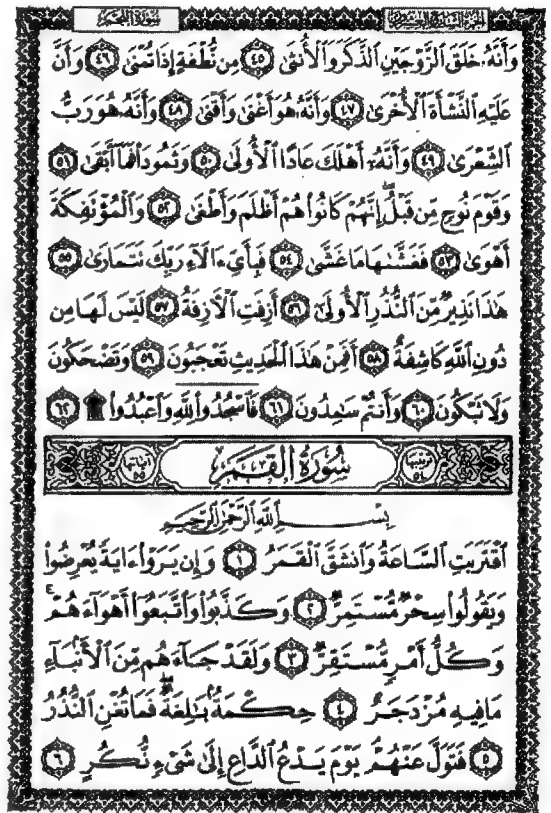 سُورَةُ النَّجْمِ الجزء السابع والعشرون
وَأَنَّهُۥ خَلَقَ ٱلزَّوْجَيْنِ ٱلذَّكَرَ وَٱلْأُنثَىٰ ٤٥ مِن نُّطْفَةٍ إِذَا تُمْنَىٰ ٤٦ وَأَنَّ
عَلَيْهِ ٱلنَّشْأَةَ ٱلْأُخْرَىٰ ٤٧ وَأَنَّهُۥ هُوَ أَغْنَىٰ وَأَقْنَىٰ ٤٨ وَأَنَّهُۥ هُوَ رَبُّ
ٱلشِّعْرَىٰ ٤٩ وَأَنَّهُۥٓ أَهْلَكَ عَادًا ٱلْأُولَىٰ ٥٠ وَثَمُودَا۟ فَمَآ أَبْقَىٰ ٥١
وَقَوْمَ نُوحٍ مِّن قَبْلُ ۖ إِنَّهُمْ كَانُوا۟ هُمْ أَظْلَمَ وَأَطْغَىٰ ٥٢ وَٱلْمُؤْتَفِكَةَ
أَهْوَىٰ ٥٣ فَغَشَّىٰهَا مَا غَشَّىٰ ٥٤ فَبِأَىِّ ءَالَآءِ رَبِّكَ تَتَمَارَىٰ ٥٥
هَـٰذَا نَذِيرٌ مِّنَ ٱلنُّذُرِ ٱلْأُولَىٰٓ ٥٦ أَزِفَتِ ٱلْـَٔازِفَةُ ٥٧ لَيْسَ لَهَا مِن
دُونِ ٱللَّهِ كَاشِفَةٌ ٥٨ أَفَمِنْ هَـٰذَا ٱلْحَدِيثِ تَعْجَبُونَ ٥٩ وَتَضْحَكُونَ
وَلَا تَبْكُونَ ٦٠ وَأَنتُمْ سَـٰمِدُونَ ٦١ فَٱسْجُدُوا۟ لِلَّهِ وَٱعْبُدُوا۟ ۩ ٦٢
ترتيبها ٥٤ سُورَةُ القَمَرِ آياتها ٥٥
بِسْمِ ٱللَّهِ ٱلرَّحْمَـٰنِ ٱلرَّحِيمِ
ٱقْتَرَبَتِ ٱلسَّاعَةُ وَٱنشَقَّ ٱلْقَمَرُ ١ وَإِن يَرَوْا۟ ءَايَةً يُعْرِضُوا۟
وَيَقُولُوا۟ سِحْرٌ مُّسْتَمِرٌّ ٢ وَكَذَّبُوا۟ وَٱتَّبَعُوٓا۟ أَهْوَآءَهُمْ ۚ
وَكُلُّ أَمْرٍ مُّسْتَقِرٌّ ٣ وَلَقَدْ جَآءَهُم مِّنَ ٱلْأَنۢبَآءِ
مَا فِيهِ مُزْدَجَرٌ ٤ حِكْمَةٌۢ بَـٰلِغَةٌ ۖ فَمَا تُغْنِ ٱلنُّذُرُ
٥ فَتَوَلَّ عَنْهُمْ ۘ يَوْمَ يَدْعُ ٱلدَّاعِ إِلَىٰ شَىْءٍ نُّكُرٍ ٦